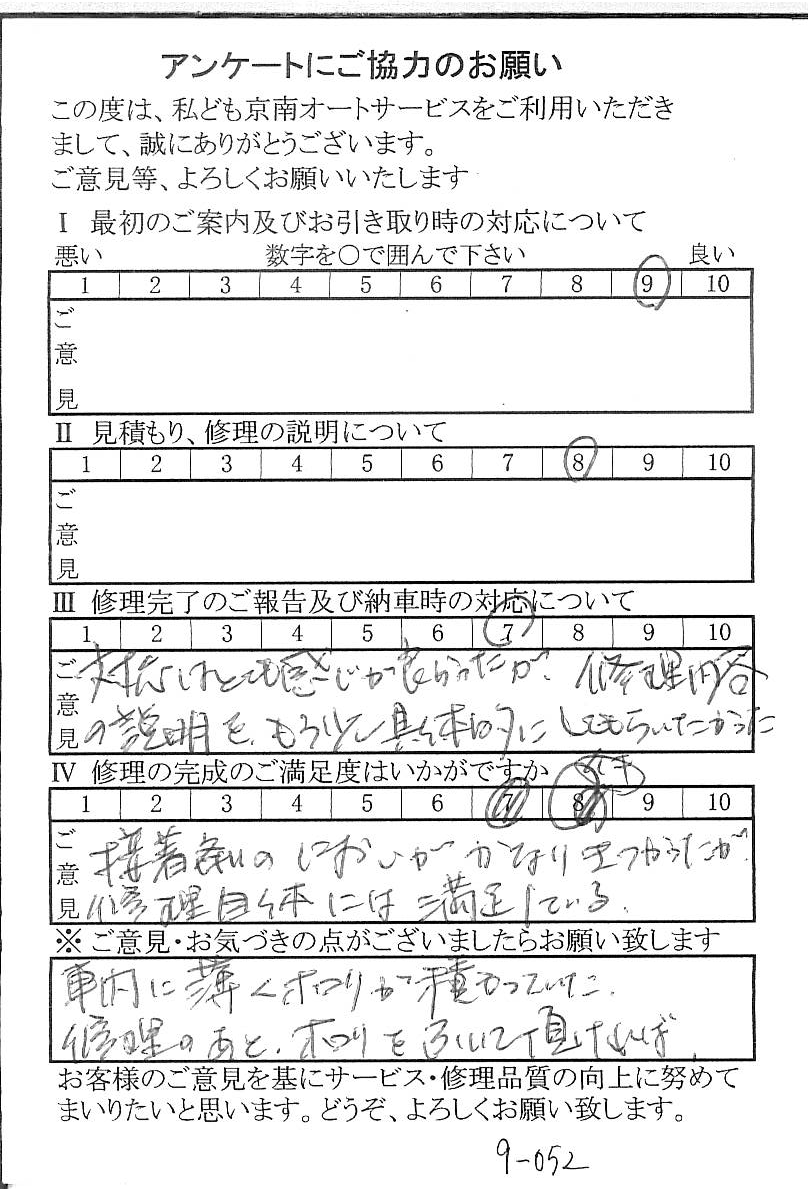 アンケートにご協力のお願い
この度は、私ども京南オートサービスをご利用いただき
まして、誠にありがとうございます。
ご意見等、よろしくお願いいたします
Ⅰ 最初のご案内及びお引き取り時の対応について
悪い 数字を○で囲んで下さい 良い
1 2 3 4 5 6 7 8 9 10
ご意見
Ⅱ 見積もり、修理の説明について
1 2 3 4 5 6 7 8 9 10
ご意見
Ⅲ 修理完了のご報告及び納車時の対応について
1 2 3 4 5 6 7 8 9 10
ご意見
対応はとても感じが良かったが、修理内容
の説明を、もう少し具体的にしてもらいたかった
Ⅳ 修理の完成のご満足度はいかがですか
1 2 3 4 5 6 7 8 9 10
ご意見
接着剤のにおいがかなりきつかったが、
修理自体には満足している。
※ ご意見・お気づきの点がございましたらお願い致します
車内に薄くホコリが積もっていた。
修理のあと、ホコリを 頂ければ、
お客様のご意見を基にサービス・修理品質の向上に努めて
まいりたいと思います。どうぞ、よろしくお願い致します。
9-052